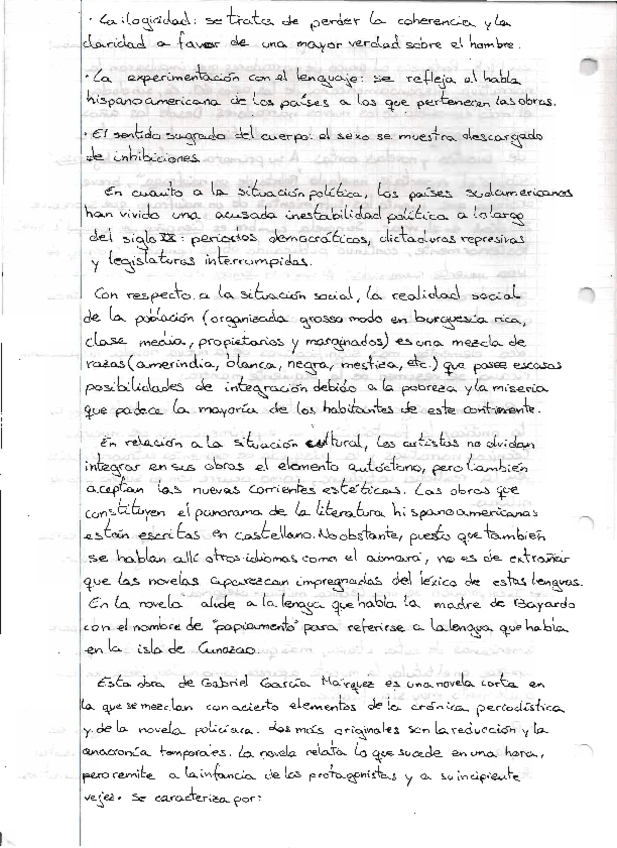 · La ilogicidad: se trata de perder la coherencia y la
claridad a favor de una mayor verdad sobre el hombre.
· La experimentación con el lenguaje: se refleja el habla
hispanoamericana de los países a los que pertenecen las obras.
· El sentido sagrado del cuerpo: el sexo se muestra descargado
de inhibiciones.
En cuanto a la situación política, los países sudamericanos
han vivido una acusada inestabilidad política a lo largo
del siglo XX: periodos democráticos, dictaduras represivas
y legislaturas interrumpidas.
Con respecto a la situación social, la realidad social
de la población (organizada grosso modo en burguesía rica,
clase media, propietarios y marginados) es una mezcla de
razas (amerindia, blanca, negra, mestiza, etc.) que posee escasas
posibilidades de integración debido a la pobreza y la miseria
que padece la mayoría de los habitantes de este continente.
En relación a la situación cultural, los artistas no olvidan
integrar en sus obras el elemento autóctono, pero también
aceptan las nuevas corrientes estéticas. Las obras que
constituyen el panorama de la literatura hispanoamericana
están escritas en castellano. No obstante, puesto que también
se hablan allí otros idiomas como el aimará, no es de extrañar
que las novelas aparezcan impregnadas del léxico de estas lenguas.
En la novela alude a la lengua que habla la madre de Bayardo
con el nombre de "papiamento" para referirse a la lengua que habla
en la isla de Curazao.
Esta obra de Gabriel García Márquez es una novela corta en
la que se mezclan con acierto elementos de la crónica periodística
y de la novela policíaca. Los más originales son la reducción y la
anacronía temporales. La novela relata lo que sucede en una hora,
pero remite a la infancia de los protagonistas y a su incipiente
vejez. Se caracteriza por: